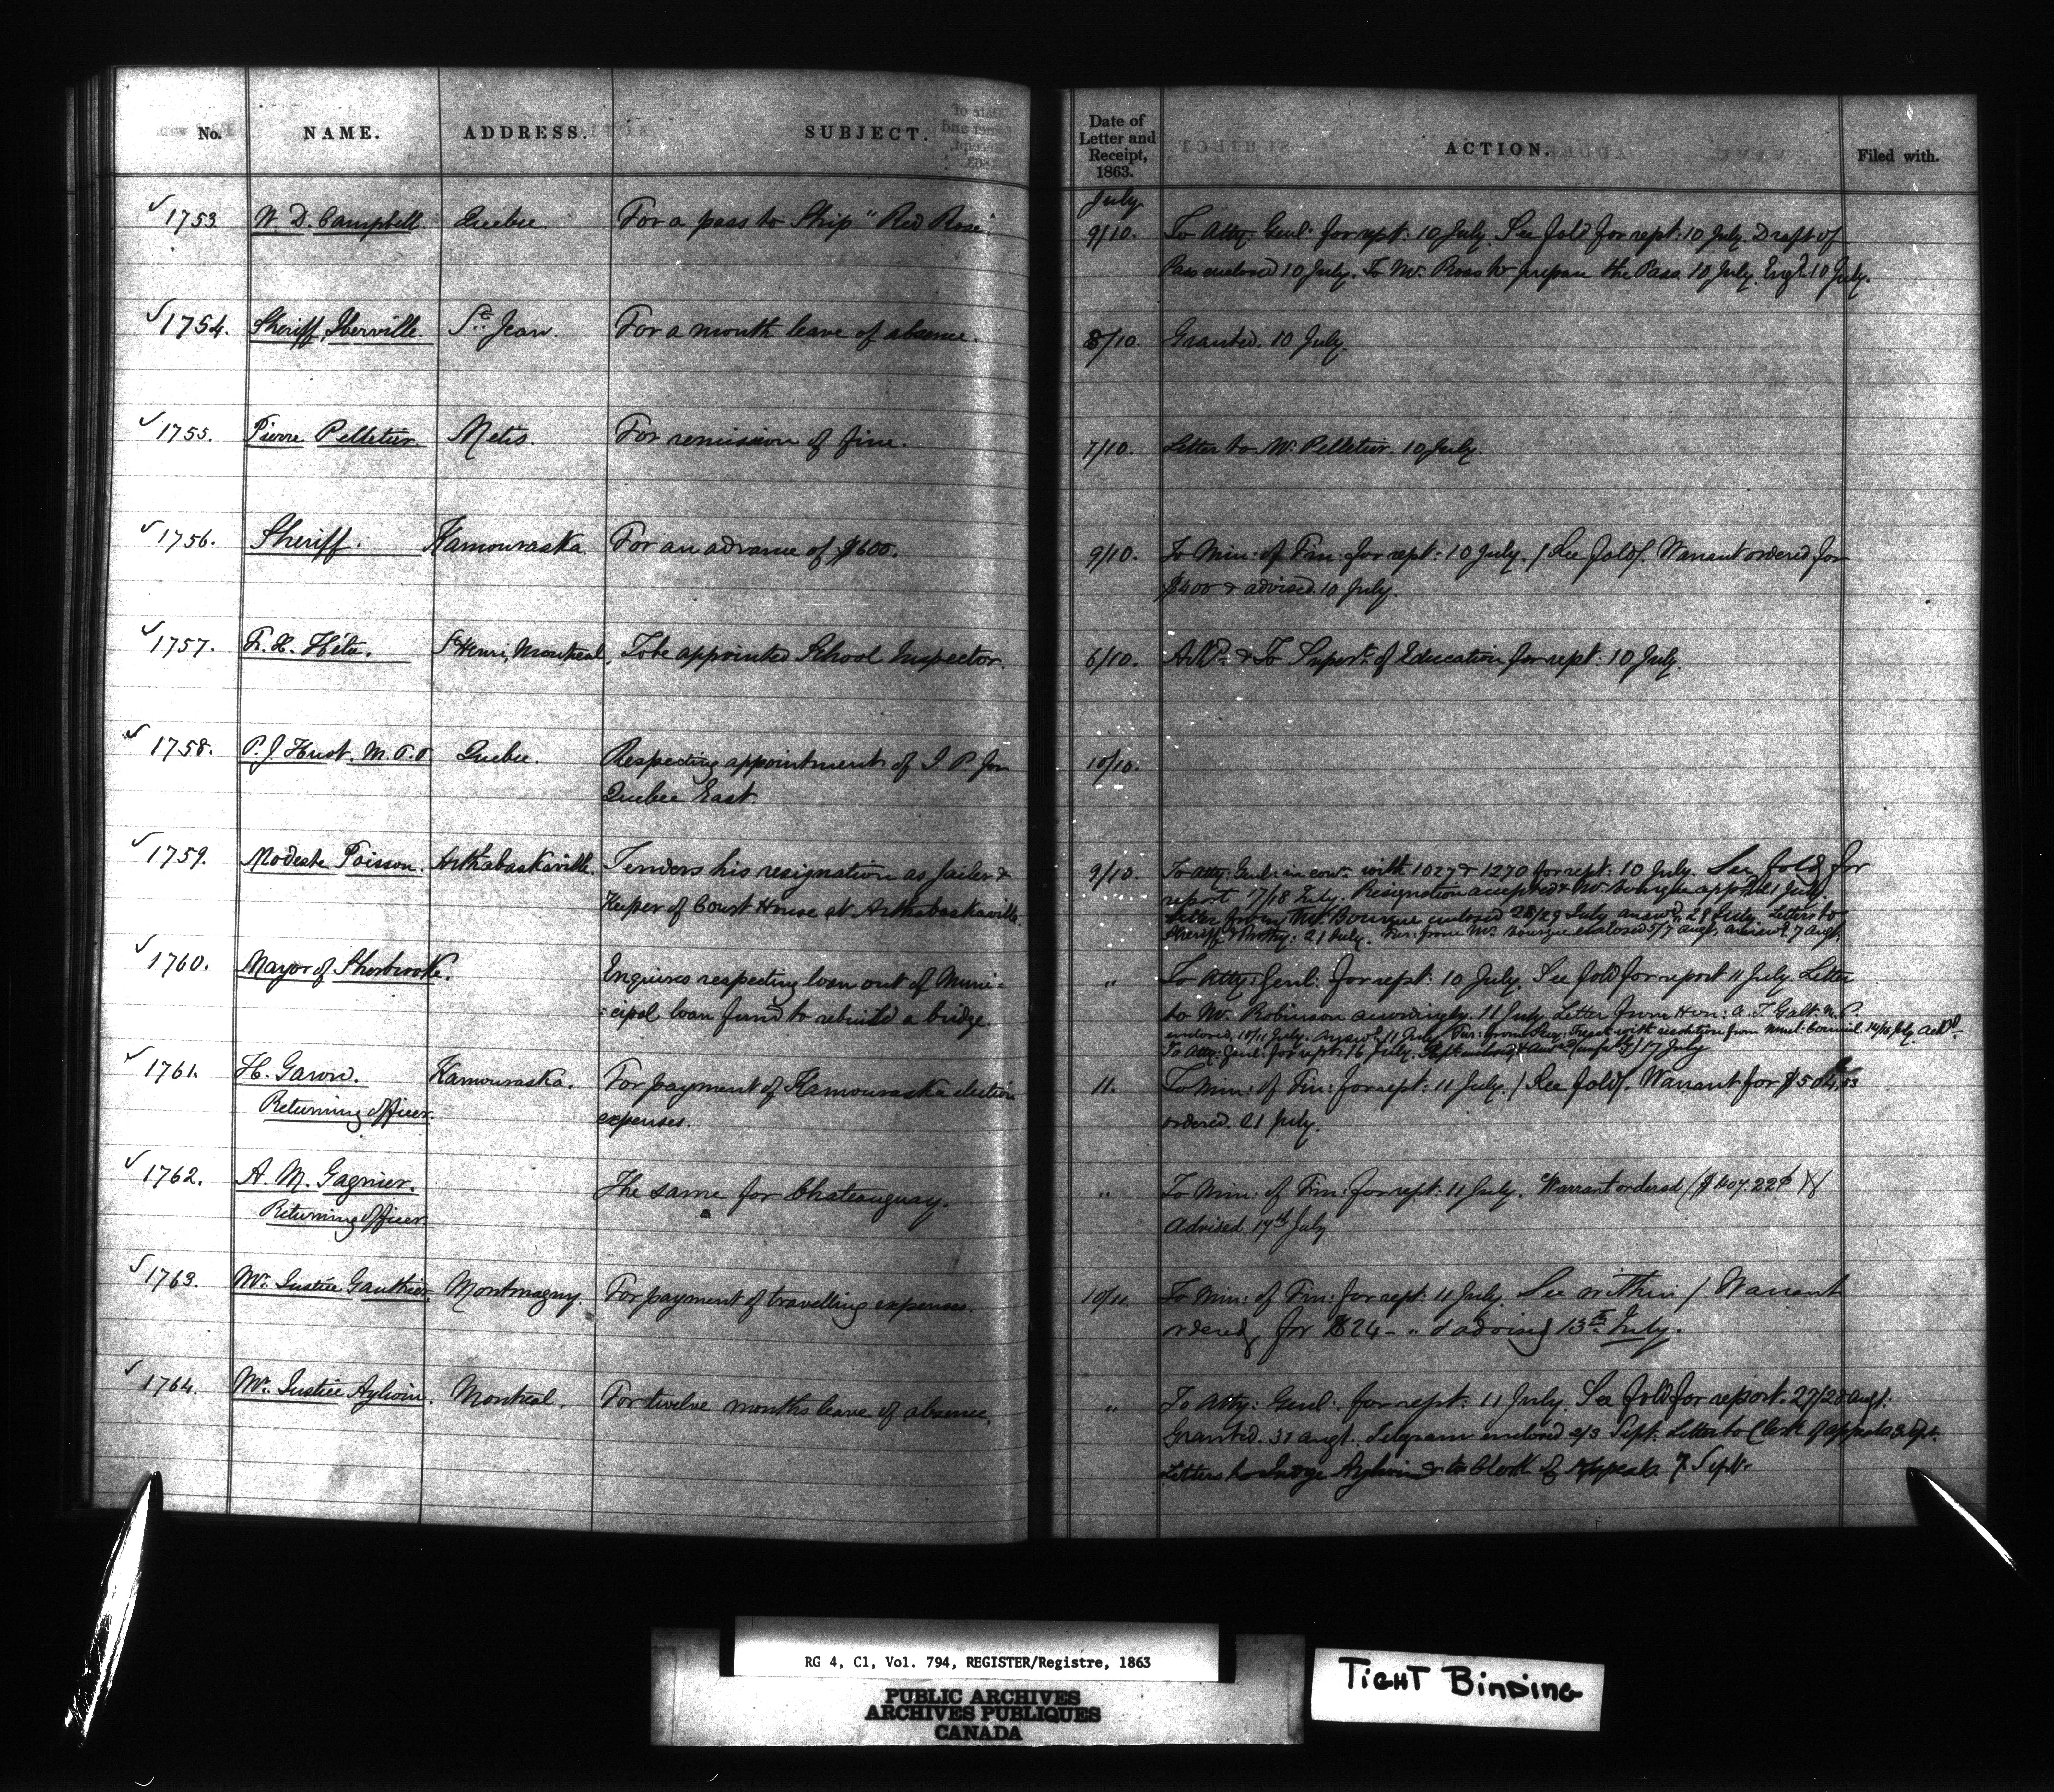 No. NAME. ADDRESS. SUBJECT. Date of Letter and Receipt, 1863. ACTION. Filed with.
July
1753 W. D. Campbell Quebec. For a pass to Ship "Red Rose". 9/10. To Atty: Genl: for rept: 10 July. See fold for rept: 10 July. Draft of
Pass enclosed 10 July. To Mr. Ross to prepare the Pass 10 July. 10 July.
1754. Sheriff Iberville St. Jean. For a month leave of absence. 8/10. Granted. 10 July.
1755. Pierre Pelletier. Metis. For remission of fine. 7/10. Letter to Mr. Pelletier. 10 July.
1756. Sheriff. Kamouraska For an advance of $600. 9/10. To Min: of Fin: for rept: 10 July. / See fold/. Warrant ordered for
$400 & advised 10 July.
1757. F. X. Hétu. St Henri, Montreal. To be appointed School Inspector. 6/10. & To Supert. of Education for rept: 10 July.
1758. P. J. Huot. M.P.P Quebec. Respecting appointments of J. P. for 10/10.
Quebec East.
1759. Modeste Poisson. Arthabaskaville. Tenders his resignation as Jailer & 9/10. To Atty: Genl: in con: with 1027 & 1270 for rept: 10 July. See fold for
Keeper of Court House at Arthabaskaville. report 17/18 July. Resignation accepted & Mr Bourque app 21 July
Letter from Mr. Bourque enclosed 28/29 July answd. 29 July. Letters to
Sheriff & Prothy: 21 July. Fur: from Mr. Bourque enclosed 5/7 augt. answd. 7 augt.
1760. Mayor of Sherbrooke. Inquires respecting loan out of Muni- " To Atty: Genl: for rept: 10 July. See fold for report 11 July. Letter
cipal loan fund to rebuild a bridge. to Mr. Robinson accordingly. 11 July. Letter from Hon: A. T. Galt M. P.
enclosed, 10/11 July. Answd. 11 July. Fur: from Secy: Treasr. with resolution from Munl: Council. 14/16 July. Ackd.
To Atty: Genl: for rept: 16 July. 17 July
1761. H. Garon. Kamouraska. For payment of Kamouraska election 11. To Min: of Fin: for rept: 11 July. / See fold/. Warrant for $504,53
Returning Officer. expenses. ordered. 21 July.
1762. A. M. Gagnier. The same for Chateauguay. " To Min: of Fin: for rept: 11 July. Warrant ordered ($407.22¢)
Returning Officer. Advised 17th July
1763. Mr. Justice Gauthier. Montmagny. For payment of travelling expenses. 10/11. To Min: of Fin: for rept: 11 July. See within / Warrant
ordered for $24 - " & advised 13th July.
1764. Mr. Justice Aylwin. Montreal. For twelve months leave of absence. " To Atty: Genl: for rept: 11 July. See fold for report. 27/28 augt.
Granted. 31 augt. Telegram enclosed 2/3 Sept. Letter to Clerk of appeals 3 Sept.
Letters to Judge Aylwin & to Clerk of Appeals 7 Septr
RG 4, C1, Vol. 794, REGISTER/Registre, 1863
PUBLIC ARCHIVES
ARCHIVES PUBLIQUES
CANADA
TIGHT BINDING